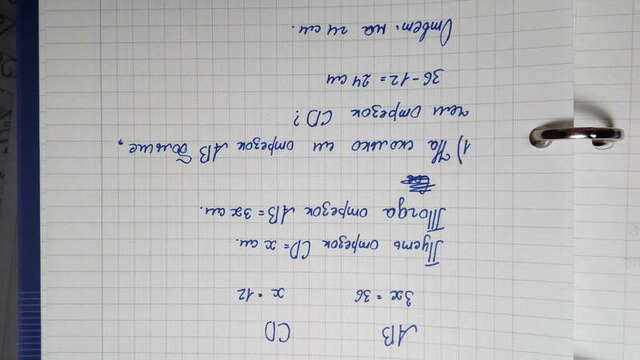 AB CD
3x = 36 x = 12
Пусть отрезок CD = x см.
Тогда отрезок AB = 3x см.
1) На сколько см отрезок AB больше,
чем отрезок CD?
36 - 12 = 24 см
Ответ: на 24 см.